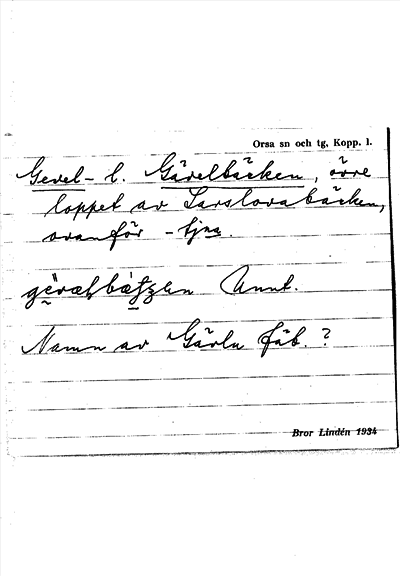 Orsa sn och tg, Kopp. l.
Gevel- l. Gävelbäcken, övre
loppet av Larslovabäcken,
ovanför -tjna.
Annt.
Namn av Gävla fäb. ?
Bror Lindén 1934